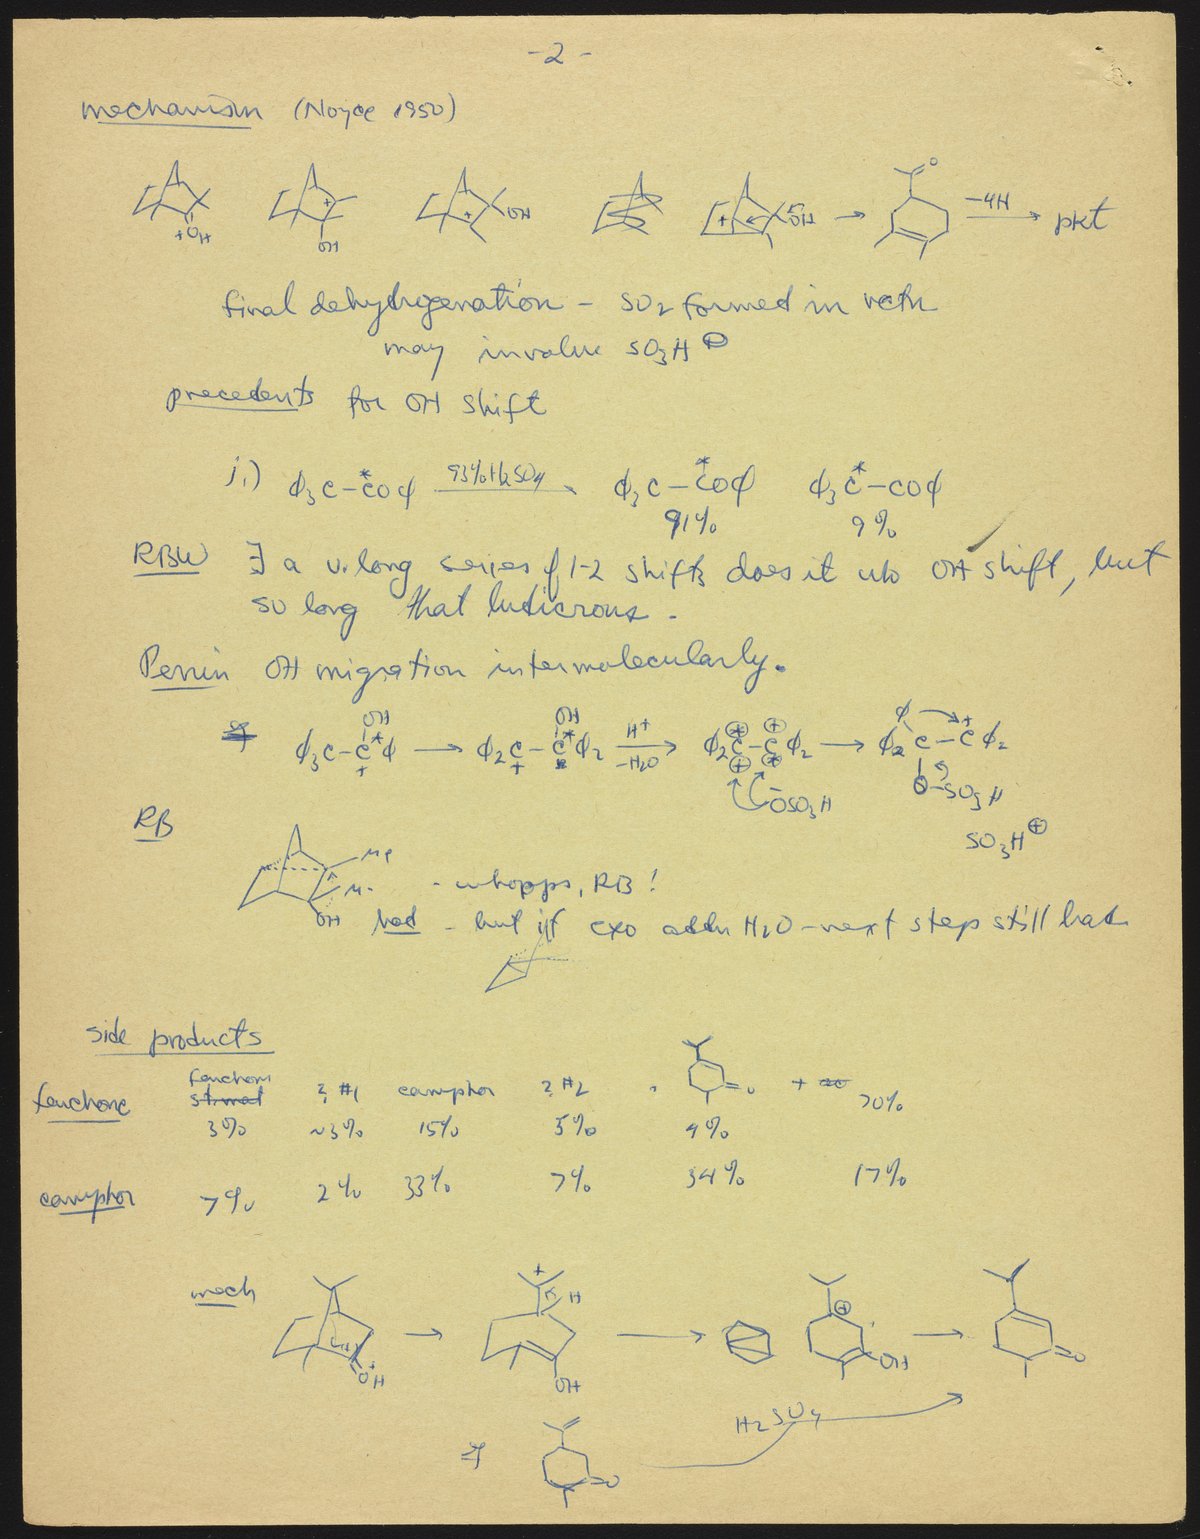 -2-
mechanism (Noyce 1950)
+OH OH OH OH → O -4H → pkt
final dehydrogenation - SO2 formed in rctn
may involve SO3H ⊖
precedents for OH shift
i.) Φ3C-C*OΦ 93% H2SO4 → Φ3C-C*OΦ Φ3C*-COΦ
91% 9%
RBW ∃ a v. long series of 1-2 shifts does it w/o OH shift, but
so long that ludicrous.
Perrin OH migration intermolecularly.
OH OH
Φ3C-C*Φ → Φ2C-C*Φ2 H+ -H2O → Φ2C-CΦ2 → Φ2C-CΦ2
+ + OSO3H O-SO3H
SO3H⊕
RB
Me
Me - whopps, RB!
OH bad - but if exo addn H2O - next step still bad
side products
fenchone fenchone ?#1 camphor ?#2 O + 70%
3% ~3% 15% 5% 4%
camphor 7% 2% 33% 7% 34% 17%
mech
H
OH OH OH O
H2SO4
∃ O